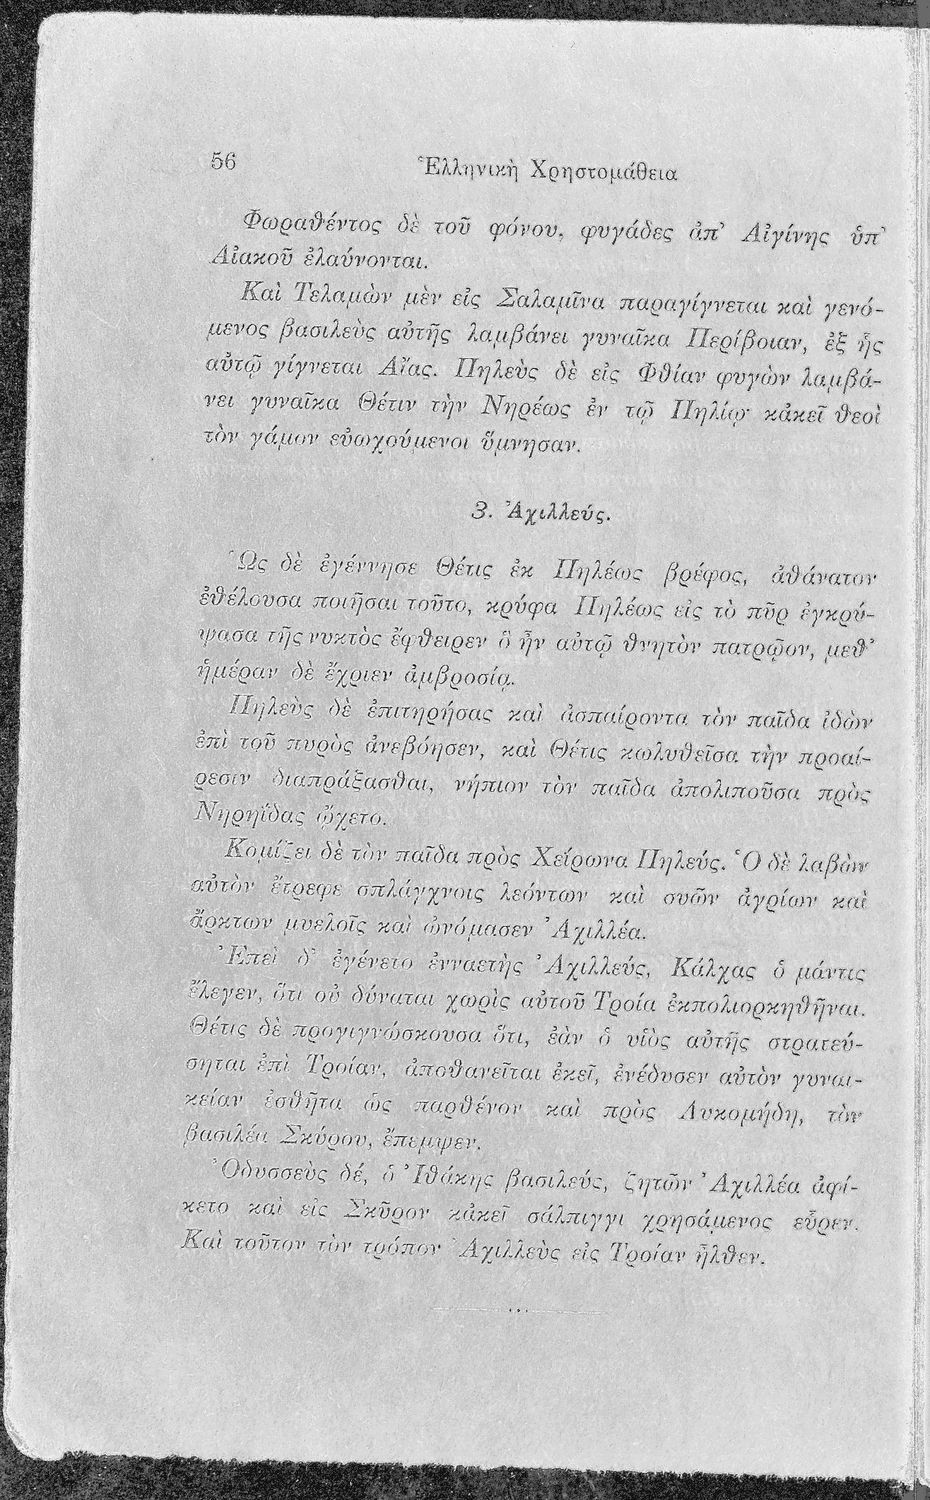 56
Ἑλληνικὴ Χρηστομάθεια
Φωραθέντος δὲ τοῦ φόνου, φυγάδες ἀπ’ Αἰγίνης ὑπ’
Αἰακοῦ ἐλαύνονται.
Καὶ Τελαμὼν μὲν εἰς Σαλαμῖνα παραγίγνεται καὶ γενό-
μενος βασιλεὺς αὐτῆς λαμβάνει γυναῖκα Περίβοιαν, ἐξ ἧς
αὐτῷ γίγνεται Αἴας. Πηλεὺς δὲ εἰς Φθίαν φυγὼν λαμβά-
νει γυναῖκα Θέτιν τὴν Νηρέως ἐν τῷ Πηλίῳ· κἀκεῖ θεοὶ
τὸν γάμον εὐωχούμενοι ὕμνησαν.
3. Ἀχιλλεύς.
Ὡς δὲ ἐγέννησε Θέτις ἐκ Πηλέως βρέφος, ἀθάνατον
ἐθέλουσα ποιῆσαι τοῦτο, κρύφα Πηλέως εἰς τὸ πῦρ ἐγκρύ-
ψασα τῆς νυκτὸς ἔφθειρεν ὃ ἦν αὐτῷ θνητὸν πατρῷον, μεθ’
ἡμέραν δὲ ἔχριεν ἀμβροσίᾳ.
Πηλεὺς δὲ ἐπιτηρήσας καὶ ἀσπαίροντα τὸν παῖδα ἰδὼν
ἐπὶ τοῦ πυρὸς ἀνεβόησεν, καὶ Θέτις κωλυθεῖσα τὴν προαί-
ρεσιν διαπράξασθαι, νήπιον τὸν παῖδα ἀπολιποῦσα πρὸς
Νηρηΐδας ᾤχετο.
Κομίζει δὲ τὸν παῖδα πρὸς Χείρωνα Πηλεύς. Ὁ δὲ λαβὼν
αὐτὸν ἔτρεφε σπλάγχνοις λεόντων καὶ συῶν ἀγρίων καὶ
ἄρκτων μυελοῖς καὶ ὠνόμασεν Ἀχιλλέα.
Ἐπεὶ δ’ ἐγένετο ἐνναετὴς Ἀχιλλεύς, Κάλχας ὁ μάντις
ἔλεγεν, ὅτι οὐ δύναται χωρὶς αὐτοῦ Τροία ἐκπολιορκηθῆναι.
Θέτις δὲ προγιγνώσκουσα ὅτι, ἐὰν ὁ υἱὸς αὐτῆς στρατεύ-
σηται ἐπὶ Τροίαν, ἀποθανεῖται ἐκεῖ, ἐνέδυσεν αὐτὸν γυναι-
κείαν ἐσθῆτα ὡς παρθένον καὶ πρὸς Λυκομήδη, τὸν
βασιλέα Σκύρου, ἔπεμψεν.
Ὀδυσσεὺς δέ, ὁ Ἰθάκης βασιλεύς, ζητῶν Ἀχιλλέα ἀφί-
κετο καὶ εἰς Σκῦρον κἀκεῖ σάλπιγγι χρησάμενος εὗρεν.
Καὶ τοῦτον τὸν τρόπον Ἀχιλλεὺς εἰς Τροίαν ἦλθεν.